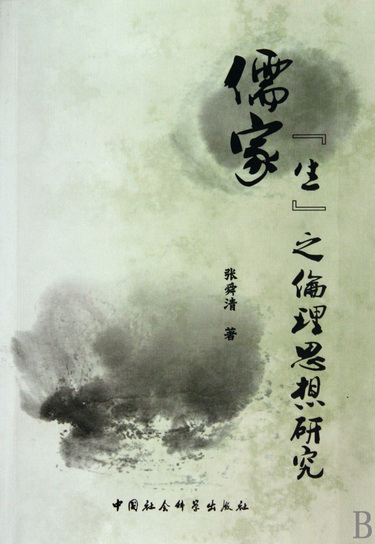 儒家
『生』之倫理思想研究
张舜清 著
中国社会科学出版社
B